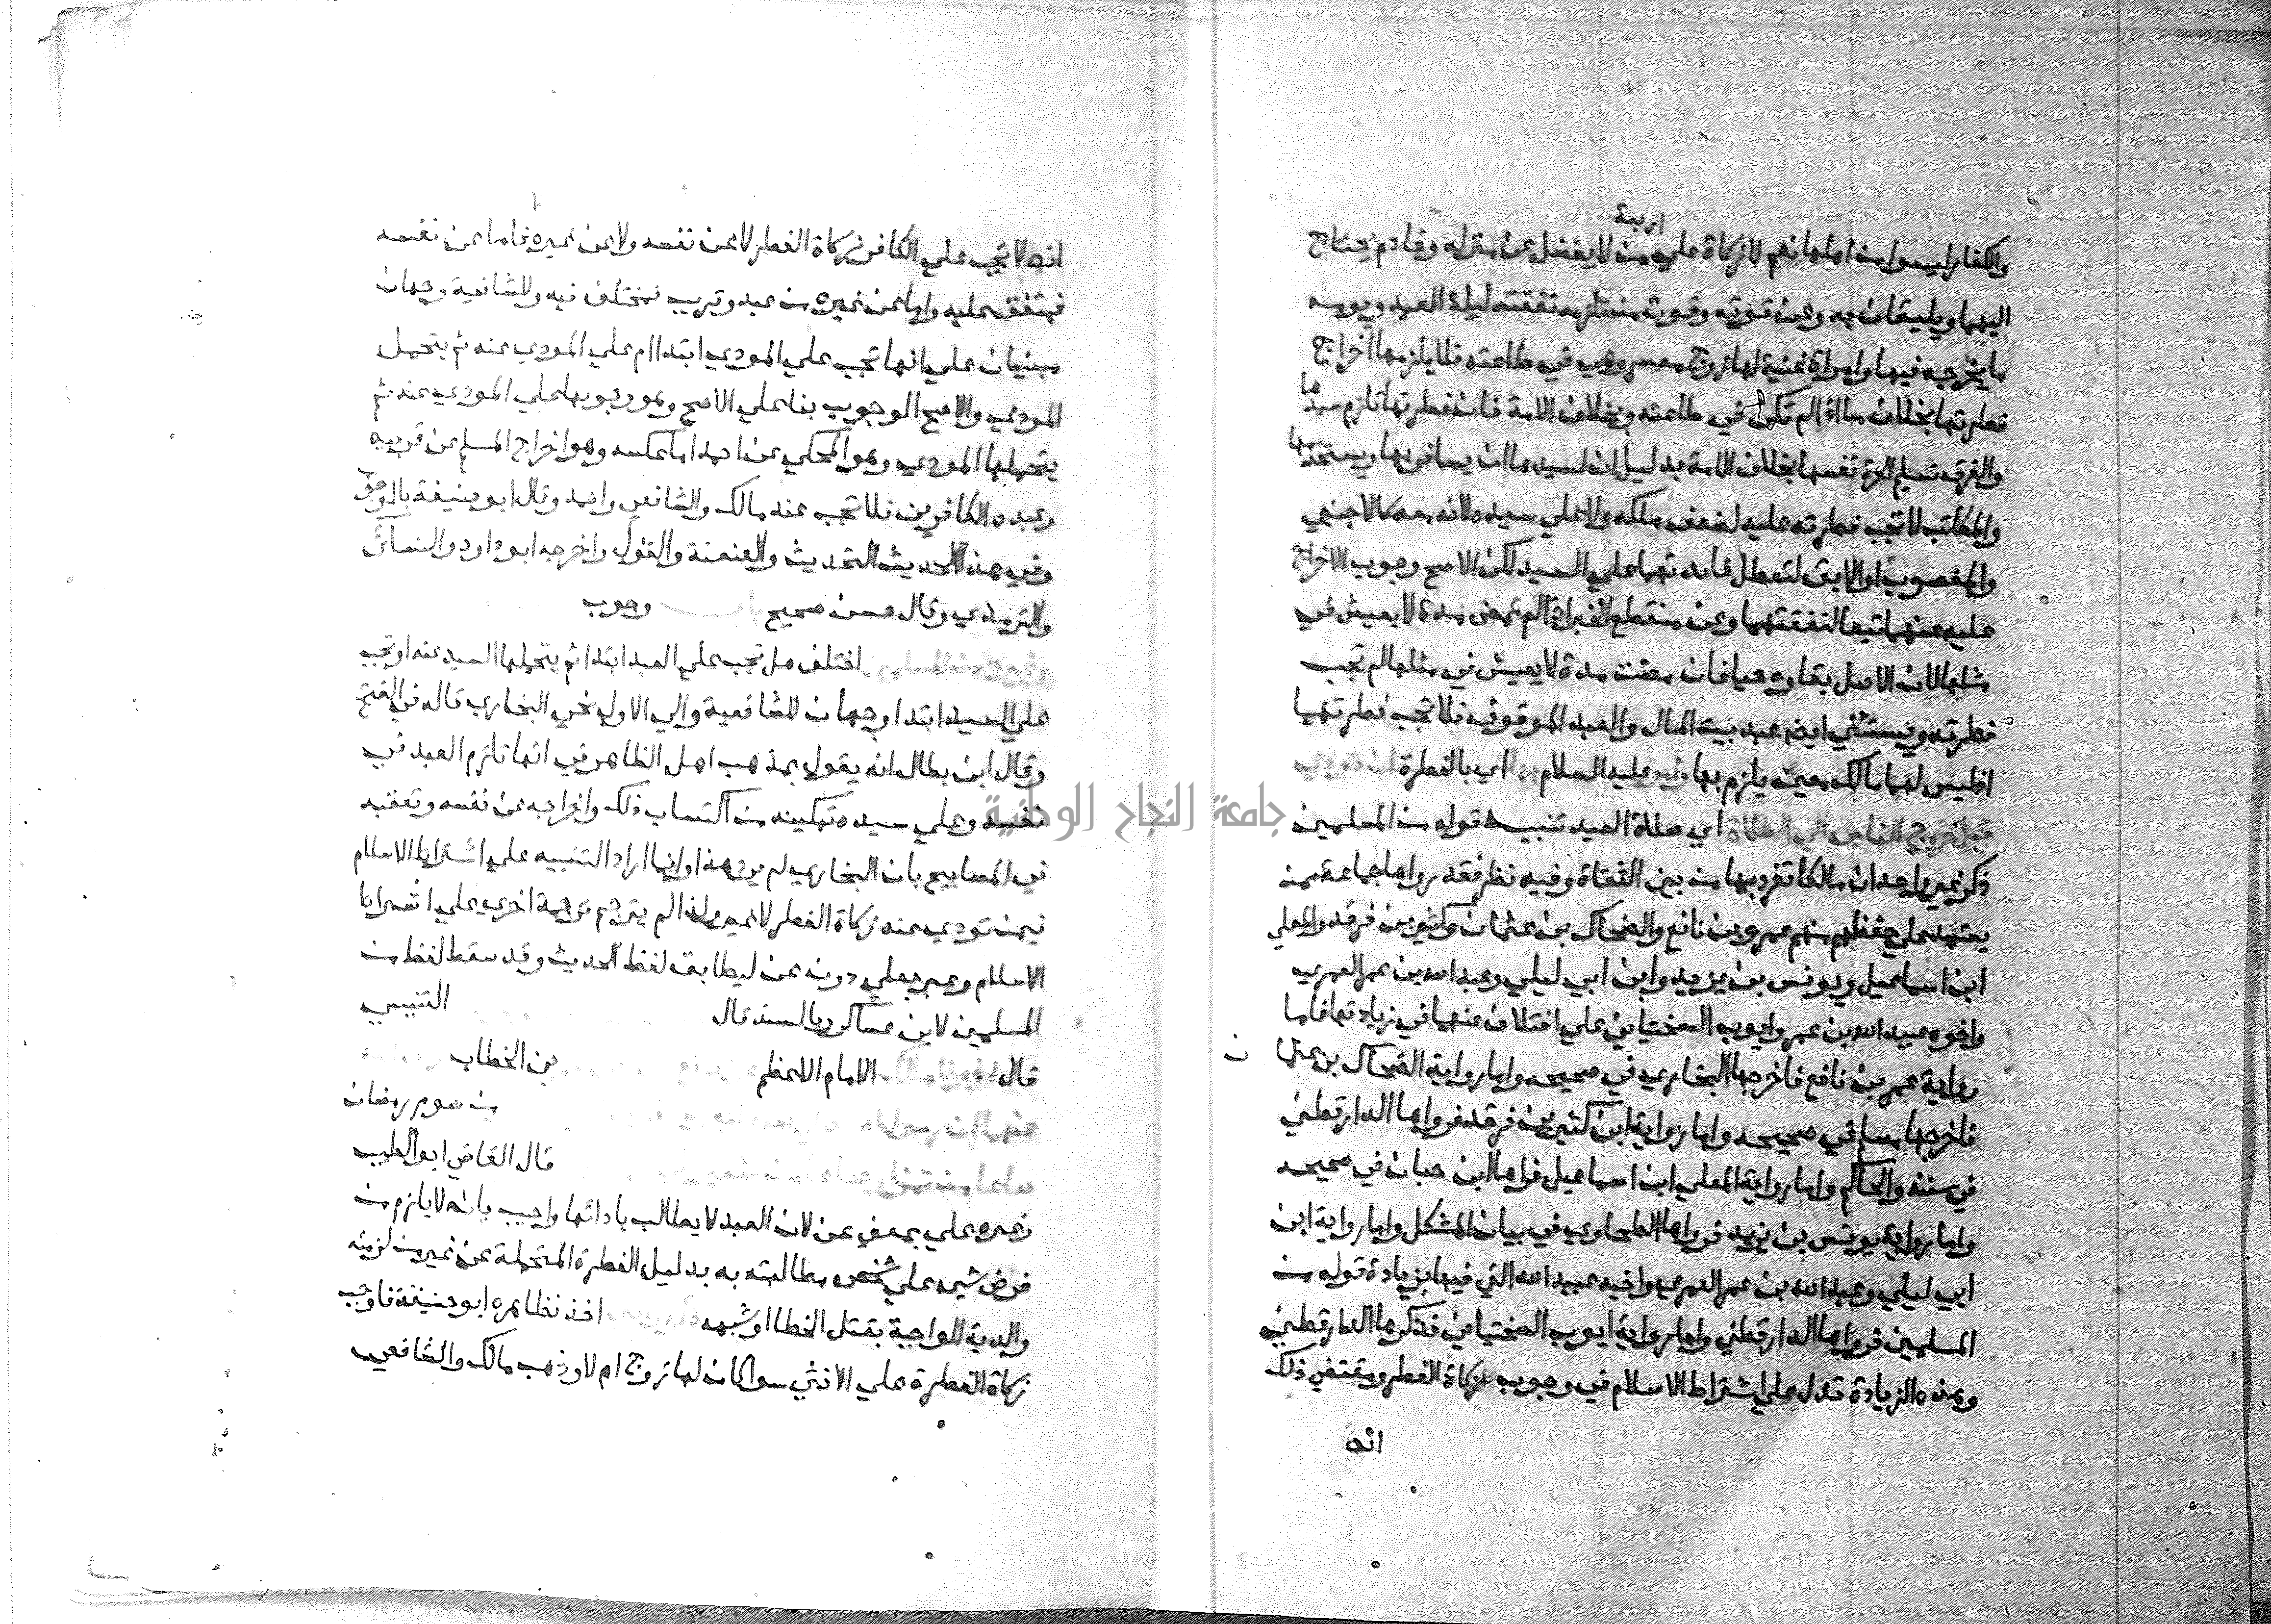 اربعة
والكفار ليسوا من اهلها نعم لا زكاة علي من لا يفضل عن منزله وخادم يحتاج
اليهما ويليقان به وعن قوته وقوت من تلزمه نفقته ليلة العيد ويومه
ما يخرجه فيها وامراة غنية لها زوج معسر وهي في طاعته فلا يلزمها اخراج
فطرتها بخلاف ما اذا لم تكن في طاعته وبخلاف الامة فان فطرتها تلزم سيدها
والفرق تسليم الحرة نفسها بخلاف الامة بدليل ان لسيدها ان يسافر بها ويستخدمها
والمكاتب لا تجب فطرته عليه لضعف ملكه ولا علي سيده لانه معه كالاجنبي
والمغصوب او الابق لتعطل فائدتهما علي السيد لكن الاصح وجوب الاخراج
عليه عنهما تبعا لنفقتهما وعن منقطع الخبر اذا لم تمض مدة لا يعيش في
مثلها لان الاصل بقاوه حيا فان مضت مدة لا يعيش في مثلها لم تجب
فطرته ويستثني ايضا عبد بيت المال والعبد الموقوف فلا تجب فطرتهما
اذ ليس لهما مالك معين يلزم بها وامر عليه السلام بها اي بالفطرة ان تودي
قبل خروج الناس الي الصلاة اي صلاة العيد تنبيه قوله من المسلمين
ذكر غير واحد ان مالكا تفرد بها من بين الثقاة وفيه نظر فقد رواها جماعة ممن
يعتمد علي حفظهم منهم عمر بن نافع والضحاك بن عثمان وكثير بن فرقد والمعلي
ابن اسماعيل ويونس بن يزيد وابن ابي ليلي وعبد الله بن عمر العمري
واخوه عبيد الله بن عمر وايوب السختياني علي اختلاف عنهما في زيادتها فاما
رواية عمر بن نافع فاخرجها البخاري في صحيحه واما رواية الضحاك بن عثمان
فاخرجها مسلم في صحيحه واما رواية ابن كثير بن فرقد فرواها الدارقطني
في سننه والحاكم واما رواية المعلي ابن اسماعيل فراها ابن حبان في صحيحه
واما رواية يونس بن يزيد فرواها الطحاوي في بيان المشكل واما رواية ابن
ابي ليلي وعبد الله بن عمر العمري واخيه عبيد الله التي فيها بزيادة قوله من
المسلمين فرواها الدارقطني واما رواية ايوب السختياني فذكرها الدارقطني
وهذه الزيادة تدل علي اشتراط الاسلام في وجوب زكاة الفطر ومقتضي ذلك
انه
انه لا تجب علي الكافر زكاة الفطر لا عن نفسه ولا عن غيره فاما عن نفسه
فمتفق عليه واما عن غيره من عبد وقريب فمختلف فيه وللشافعية وجهان
مبنيان علي انها تجب علي المودي ابتداام علي المودي عنه ثم يتحمل
المودي والاصح الوجوب بنا علي الاصح وهو وجوبها علي المودي عنه ثم
يتحملها المودي وهو المحكي عن احمد اما عكسه وهو اخراج المسلم عن قريبه
وعبده الكافرين فلا تجب عند مالك والشافعي واحمد وقال ابو حنيفة بالوجوب
وفي هذا الحديث التحديث والعنعنة والقول واخرجه ابو داود والنسائي
والترمذي وقال حسن صحيح وجوب
اختلف هل تجب علي العبد ابتدا ثم يتحملها السيد عنه او تجب
علي السيد ابتدا وجهان للشافعية والي الاول نحي البخاري قاله في الفتح
وقال ابن بطال انه يقول بمذهب اهل الظاهر في انها تلزم العبد في
نفسه وعلي سيده تمكينه من اكتساب ذلك واخراجه عن نفسه وتعقبه
في المصابيح بان البخاري لم يرد هذا وانما اراد التنبيه علي اشتراط الاسلام
فيمن تودي عنه زكاة الفطر لا غير ولذا لم يترجم ترجمة اخري علي اشتراط
الاسلام وعبر بعلي دون عن ليطابق لفظ الحديث وقد سقط لفظ من
المسلمين لابن عساكر وبالسند قال التنيسي
قال الامام الاعظم بن الخطاب
من صوم رمضان
قال القاضي ابو الطيب
وغيره علي بمعني عن لان العبد لا يطالب بادائها واجيب بانه لا يلزم من
فرض شي علي شخص مطالبته به بدليل الفطرة المتحملة عن غير من لزمته
والدية الواجبة بقتل الخطا او شبهه اخذ بظاهره ابو حنيفة فاوجب
زكاة الفطرة علي الانثي سوا كان لها زوج ام لا وذهب مالك والشافعي
جامعة النجاح الوطنية